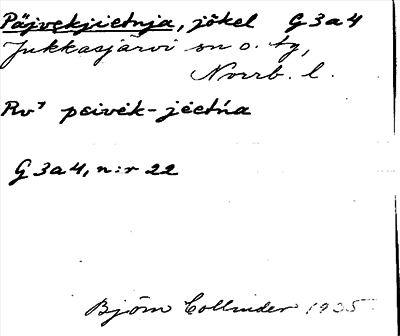 Päjvekjietnja, jökel G3a4
Jukkasjärvi sn o. tg,
Norrb. l.
Rv⁷ peivék-jéetńa
G3a4, n:r 22
Björn Collinder 1935